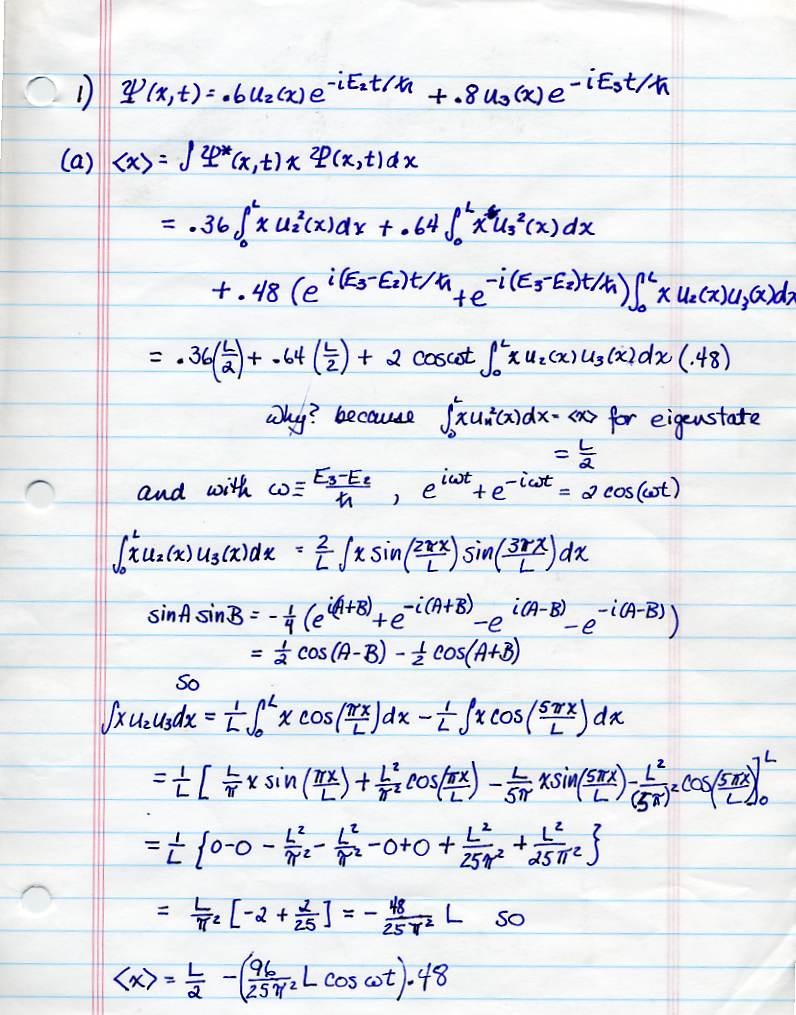 1) Ψ(x,t) = .6u₂(x)e^{-iE₂t/ħ} + .8u₃(x)e^{-iE₃t/ħ}
(a) <x> = ∫Ψ*(x,t) x Ψ(x,t)dx
= .36∫₀ᴸ x u₂²(x)dx + .64∫₀ᴸ x u₃²(x)dx
+ .48 (e^{i(E₃-E₂)t/ħ} + e^{-i(E₃-E₂)t/ħ})∫₀ᴸ x u₂(x)u₃(x)dx
= .36(L/2) + .64(L/2) + 2 cosωt ∫₀ᴸ x u₂(x)u₃(x)dx (.48)
why? because ∫₀ᴸ x uₙ²(x)dx = <x> for eigenstate
= L/2
and with ω ≡ (E₃-E₂)/ħ , e^{iωt} + e^{-iωt} = 2 cos(ωt)
∫₀ᴸ x u₂(x)u₃(x)dx = 2/L ∫x sin(2πx/L) sin(3πx/L)dx
sinA sinB = -1/4 (e^{i(A+B)} + e^{-i(A+B)} - e^{i(A-B)} - e^{-i(A-B)})
= 1/2 cos(A-B) - 1/2 cos(A+B)
so
∫x u₂u₃dx = 1/L ∫₀ᴸ x cos(πx/L)dx - 1/L ∫x cos(5πx/L)dx
= 1/L [L/π x sin(πx/L) + L²/π² cos(πx/L) - L/5π x sin(5πx/L) - L²/(5π)² cos(5πx/L)]₀ᴸ
= 1/L {0-0 - L²/π² - L²/π² - 0+0 + L²/25π² + L²/25π²}
= L/π² [-2 + 2/25] = - 48/25π² L so
<x> = L/2 - (96/25π² L cos ωt).48